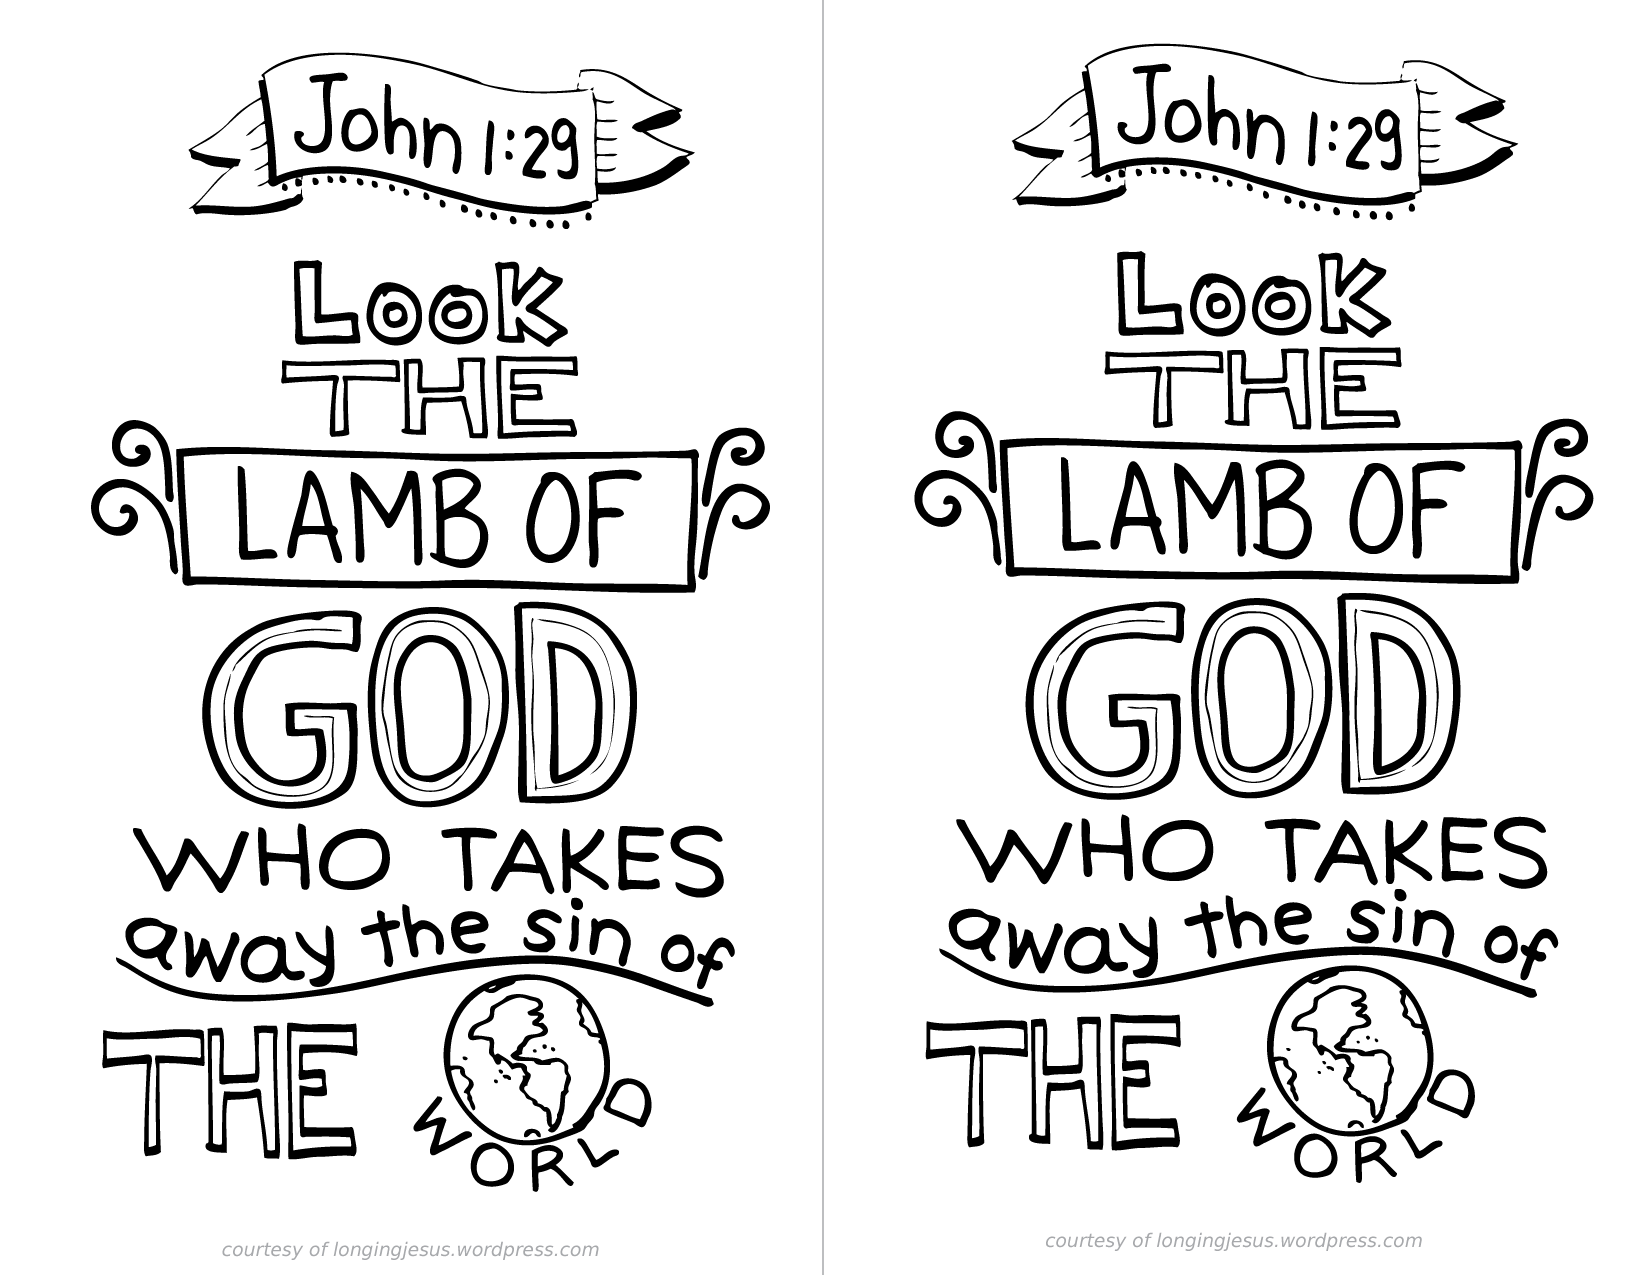 John 1:29
Look
THE
LAMB OF
GOD
WHO TAKES
away the sin of
THE
WORLD
courtesy of longingjesus.wordpress.com
John 1:29
Look
THE
LAMB OF
GOD
WHO TAKES
away the sin of
THE
WORLD
courtesy of longingjesus.wordpress.com